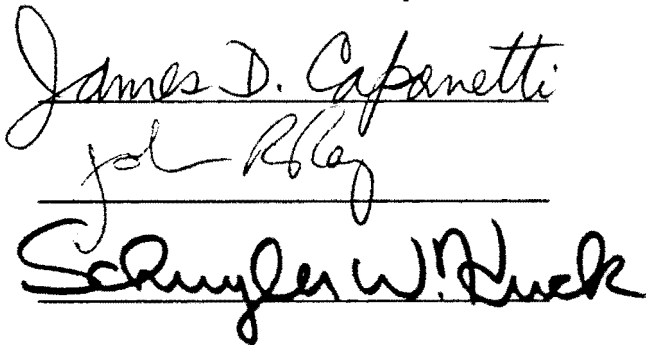 James D. Caponetti
John R Ray
Schuyler W. Huck